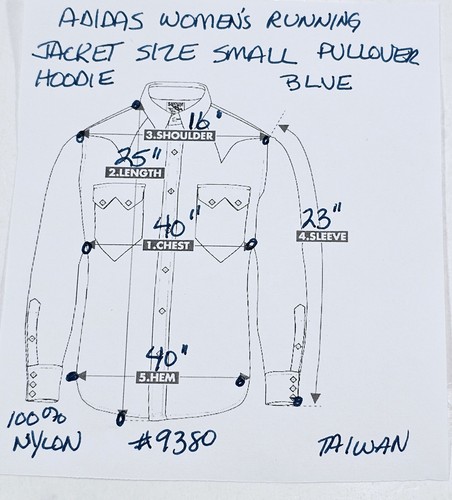 ADIDAS WOMEN'S RUNNING
JACKET SIZE SMALL PULLOVER
HOODIE BLUE
16"
3.SHOULDER
25"
2.LENGTH
23"
4.SLEEVE
40"
1.CHEST
40"
5.HEM
100%
NYLON #9380 TAIWAN